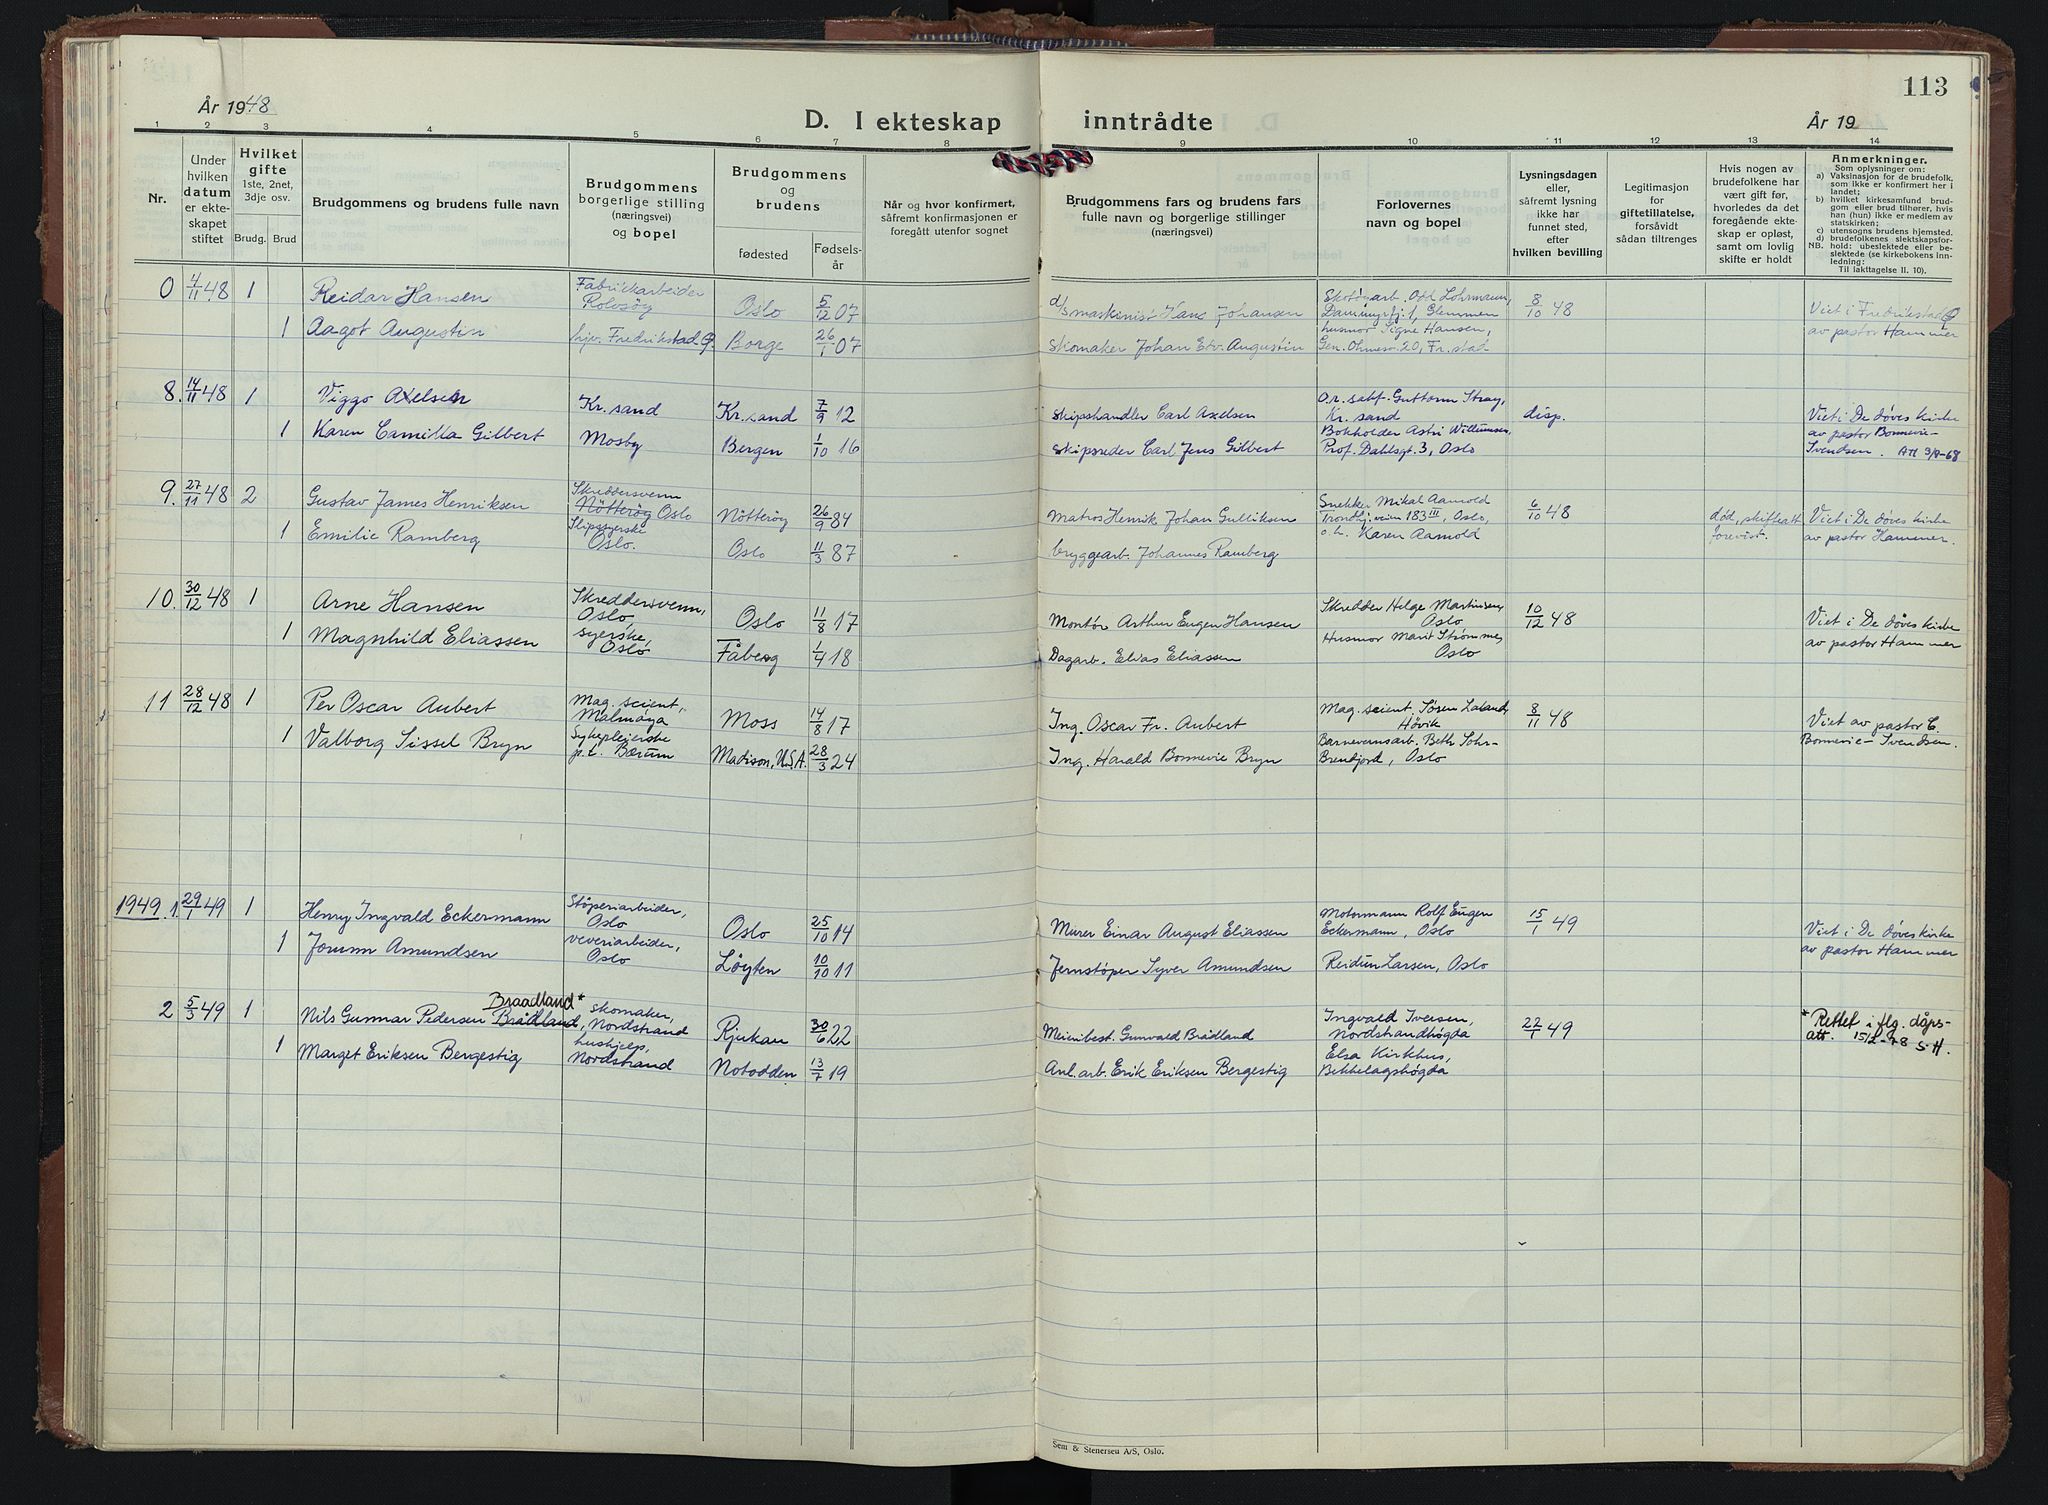 113
År 1948
D. I ekteskap inntrådte
År 19
1 2 3 4 5 6 7 8 9 10 11 12 13 14
Nr.
Under hvilken datum er ekteskapet stiftet
Hvilket gifte 1ste, 2net, 3dje osv.
Brudg. Brud
Brudgommens og brudens fulle navn
Brudgommens borgerlige stilling (næringsvei) og bopel
Brudgommens og brudens
fødested
Fødsels-år
Når og hvor konfirmert, såfremt konfirmasjonen er foregått utenfor sognet
Brudgommens fars og brudens fars fulle navn og borgerlige stillinger (næringsvei)
Forlovernes navn og bopel
Lysningsdagen eller, såfremt lysning ikke har funnet sted, efter hvilken bevilling
Legitimasjon for giftetillatelse, forsåvidt sådan tiltrenges
Hvis nogen av brudefolkene har vært gift før, hvorledes da det foregående ekteskap er opløst, samt om lovlig skifte er holdt
Anmerkninger.
Som oplysninger om:
a) Vaksinasjon for de brudefolk, som ikke er konfirmert her i landet;
b) hvilket kirkesamfund brudgom eller brud tilhører, hvis han (hun) ikke er medlem av statskirken;
c) utensogns brudens hjemsted.
d) brudefolkenes slektskapsforhold: ubeslektede eller beslektede (se kirkebokens innledning:
NB.
Til iakttagelse II. 10).
0 4/11 48 1 Reidar Hansen Fabrikkarbeider Rolvsøy Oslo 5/12 07 d/s maskinist Hans Johansen Skotøyarb. Odd Lohrmann, Dammyrfj. 1, Glemmen 8/10 48 Viet i Fredrikstad
1 Aagot Augustin hjv. Fredrikstad Borge 26/1 07 Skomaker Johan Edv. Augustin husmor Signe Hansen, Gen. Ohmesv. 20, Fr.stad av pastor Hammer
8. 14/11 48 1 Viggo Axelsen Kr.sand Kr.sand 7/9 12 Skipshandler Carl Axelsen O.r.sakf. Guttorm Stray, Kr.sand disp. Viet i De døves kirke
1 Karen Camilla Gilbert Mosby Bergen 1/10 16 Skipsreder Carl Jens Gilbert Bokholder Astri Willumsen, Prof. Dahlsgt. 3, Oslo av pastor Bonnevie-Svendsen.
9. 27/11 48 2 Gustav James Henriksen Skreddersvenn Nötteröy Oslo Nötteröy 26/9 84 Matros Henrik Johan Gulliksen Snekker Mikal Aamold Trondhj.veien 183 III, Oslo, 6/10 48 død, skifteatt. forevist. Viet i De døves kirke
1 Emilie Ramberg Slipssyerske Oslo. Oslo 11/3 87 bryggearb. Johannes Ramberg o.h. Karen Aamold av pastor Hammer.
10. 30/12 48 1 Arne Hansen Skreddersvenn, Oslo Oslo 11/8 17 Montør Arthur Eugen Hansen Skredder Helge Martinsen, Oslo 10/12 48 Viet i De døves kirke
1 Magnhild Eliassen syerske, Oslo Fåberg 1/4 18 Dagarb. Elias Eliassen Husmor Marit Strømmes Oslo av pastor Hammer
11 28/12 48 1 Per Oscar Aubert Mag. scient, Malmøya Moss 14/8 17 Ing. Oscar Fr. Aubert Mag. scient. Søren Laland, Høvik 8/11 48 Viet av pastor C.
1 Valborg Sissel Bryn Sykepleierske p.t. Bærum Madison, U.S.A. 28/3 24 Ing. Harald Bonnevie Bryn Barnevernsarb. Beth Sohr-Brenfjord, Oslo Bonnevie-Svendsen.
1949. 1. 29/1 49 1 Henry Ingvald Eckermann Støperiarbeider, Oslo Oslo 25/10 14 Murer Einar August Eliassen Motormann Rolf Eugen Eckermann, Oslo 15/1 49 Viet i De døves kirke
1 Jorunn Amundsen veveriarbeider, Oslo Løyten 10/10 11 Jernstøper Syver Amundsen Reidun Larsen, Oslo av pastor Hammer
Braadland*
2 5/3 49 1 Nils Gunnar Pedersen Brådland, Skomaker, Nordstrand Rjukan 30/6 22 Meieribest. Gunvald Brådland Ingvald Iversen, Nordstrandhøgda 22/1 49 * Rettet i flg. dåps-att. 15/2-78 S.H.
1 Marget Eriksen Bergestig hushjelp, Nordstrand Notodden 13/7 19 Anl.arb. Erik Eriksen Bergestig Elsa Kirkhus, Bekkelagshøgda
Sem & Stenersen A/S, Oslo.